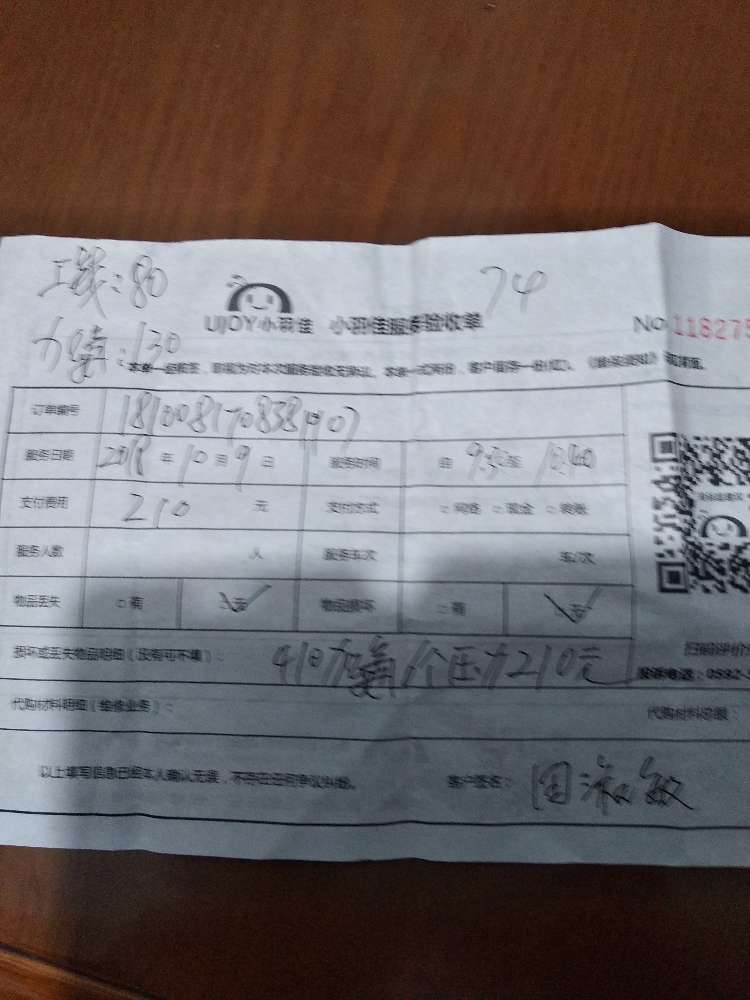 工钱:80
74
UJOY小羽佳 小羽佳服务验收单
NO 118275
加氟:130
本单一经签写，即视为对本次服务验收无异议。本单一式两份，客户留存一份
订单编号
服务日期 2018年10月9日 服务时间 自9:30至10:40
支付费用 210元 支付方式 □网络 □现金 □转账
服务人数 人 服务车次 车/次
物品丢失 □有 □无 物品损坏 □有 □无
损坏或丢失物品明细（没有可不填）： 410加氟1个压力210元
服务电话：0592-5
代购材料明细（维修业务）： 代购材料总额：
以上填写信息已经本人确认无误，不存在任何争议纠纷。 客户签名： 周淑敏